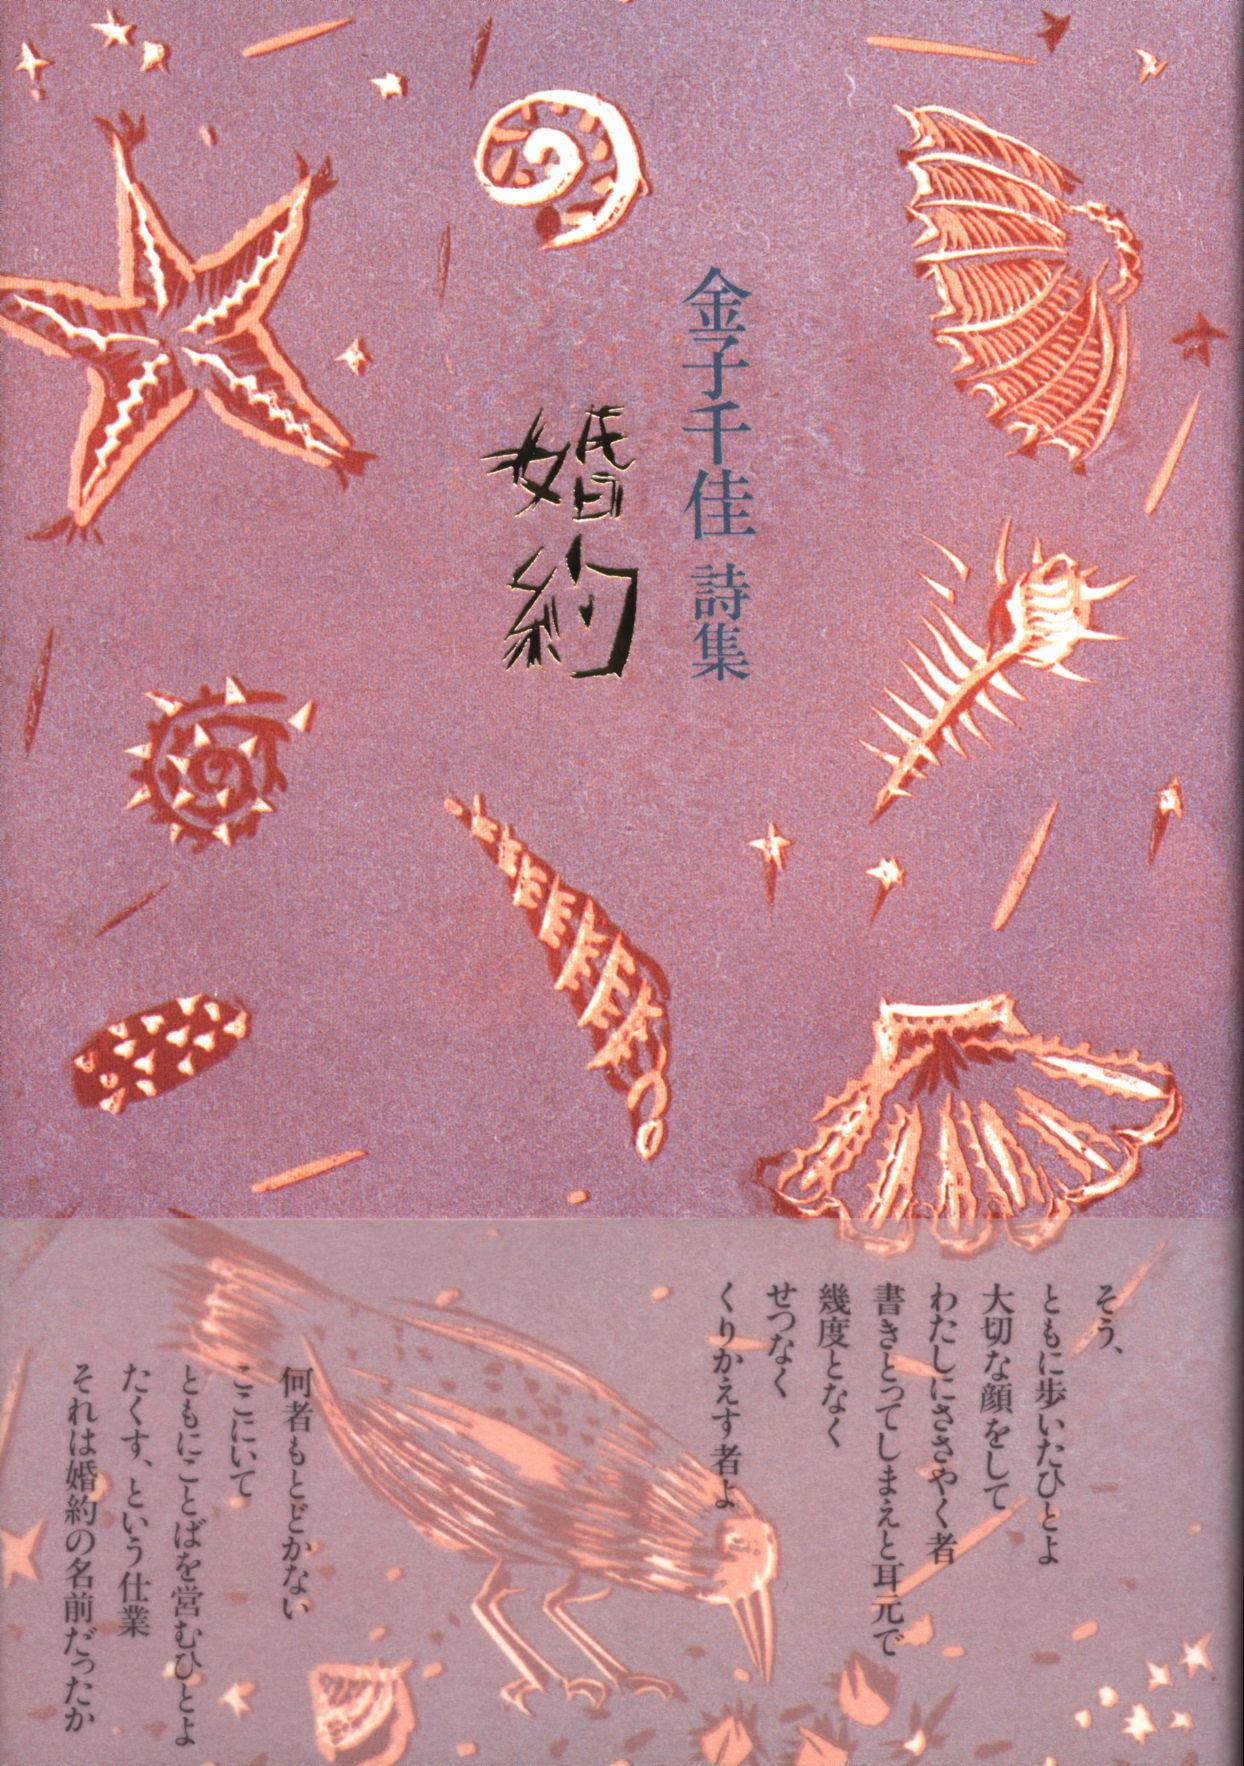 金子千佳 詩集
婚約
そう、
ともに歩いたひとよ
大切な顔をして
わたしにささやく者
書きとってしまえと耳元で
幾度となく
せつなく
くりかえす者よ
何者もとどかない
ここにいて
ともにことばを営むひとよ
たくす、という仕業
それは婚約の名前だったか